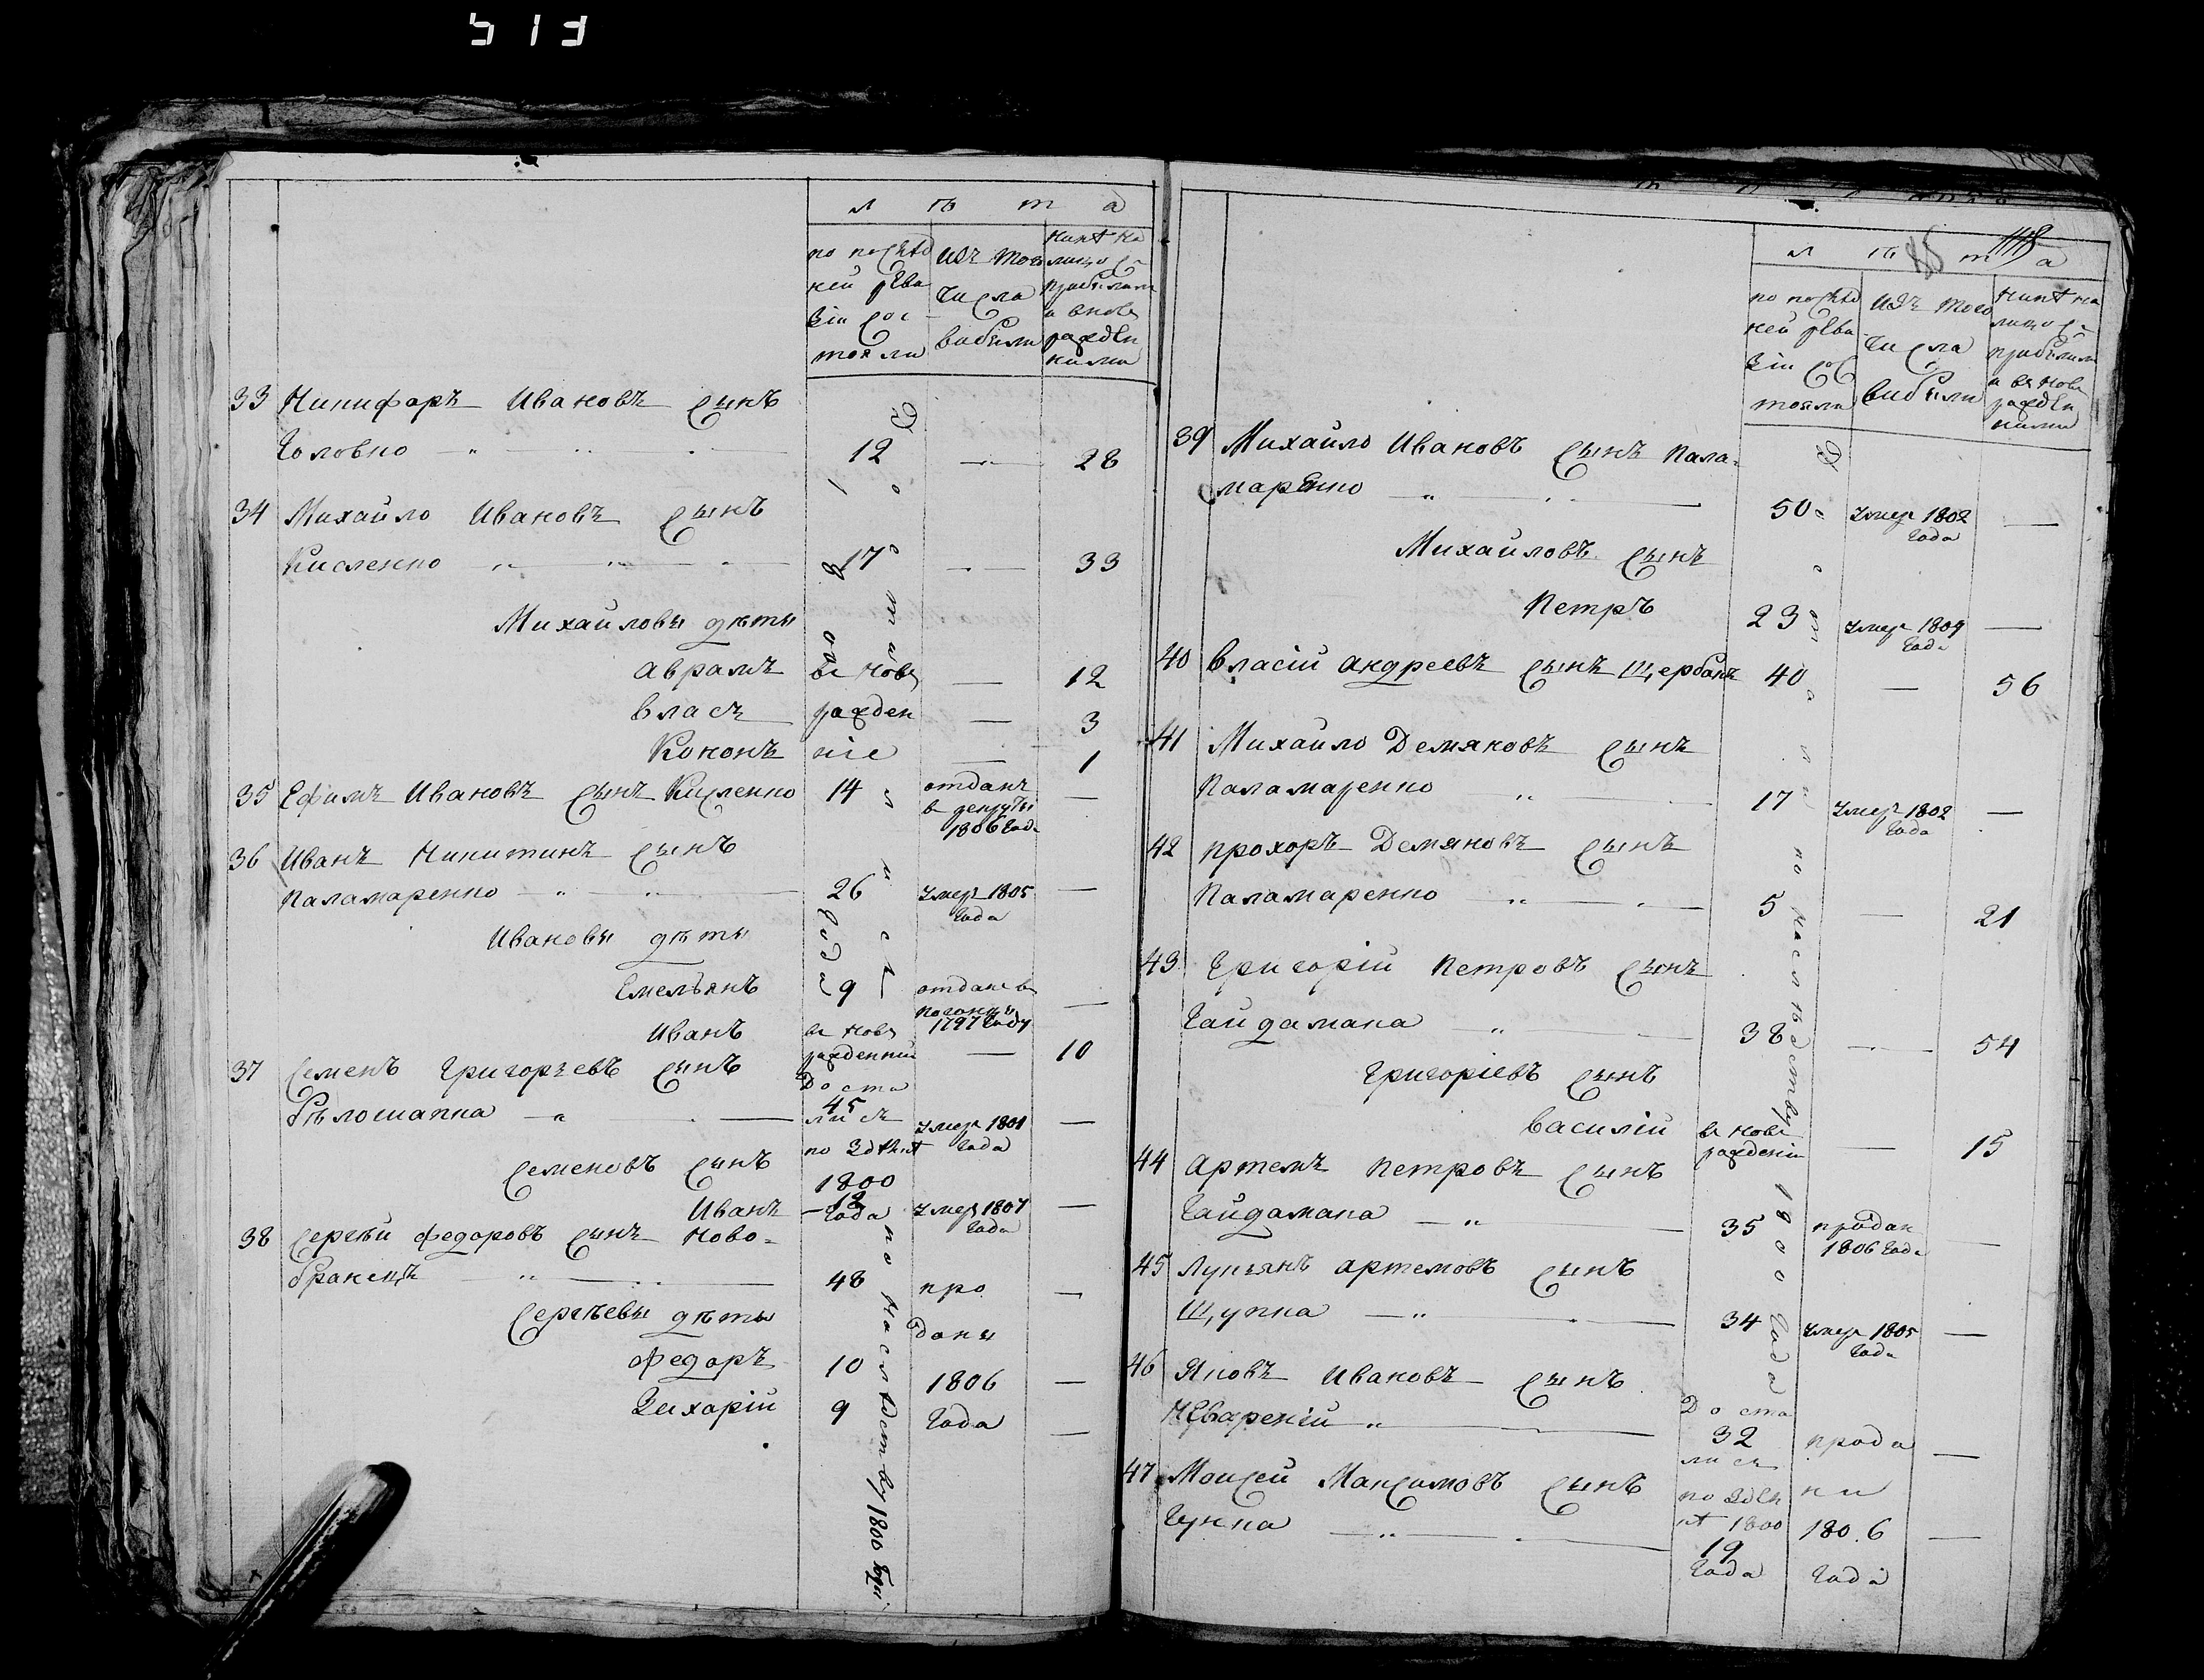 513
лѣта
по послѣд
ней реви
зіи сос
тояли
изъ того
числа
выбыли
нынѣ на
лицо съ
прибылыми
и вновь
рожден
ными
33 Никифоръ Ивановъ сынъ
Головко 12 — 28
34 Михайло Ивановъ сынъ
Кисленко 17 — 33
Михайловы дѣты
Аврамъ вновь — 12
Власъ рожден — 3
Кононъ ніе — 1
35 Ефимъ Ивановъ сынъ Кисленко 14 отданъ —
в рекруты
1806 года
36 Иванъ Никитинъ сынъ
Паламаренко 26 умер 1805 —
года
Ивановы дѣты
Емельянъ 9 отдан в —
погонцы
1797 году
Иванъ вновь
рожденный — 10
37 Семенъ Григорьевъ сынъ
Бѣлошапка 45 умер 1801 —
года
Достались
по
1800
года
Семеновъ сынъ
Иванъ 12 умер 1807 —
года
38 Сергѣй Федоровъ сынъ Ново-
бранецъ 48 про —
Сергѣевы дѣты даны
Федоръ 10 1806 —
Захарій 9 года —
Достались
по наслѣдству 1800 году
1800 года
85
118
лѣта
по послѣд
ней реви
зіи сос
тояли
изъ того
числа
выбыли
нынѣ на
лицо съ
прибылыми
и вновь
рожден
ными
39 Михайло Ивановъ сынъ Пала-
маренко 50 умер 1802 —
года
Михайловъ сынъ
Петръ 23 умер 1809 —
года
40 Власій Андреевъ сынъ Щербакъ 40 — 56
41 Михайло Демяновъ сынъ
Паламаренко 17 умер 1802 —
года
42 Прохоръ Демяновъ сынъ
Паламаренко 5 — 21
43 Григорій Петровъ сынъ
Гайдамака 38 — 54
Григоріевъ сынъ
Василій вновь — 15
рожденій
44 Артемъ Петровъ сынъ
Гайдамака 35 продан —
1806 года
45 Лукьянъ Артемовъ сынъ
Щупка 34 умер 1805 —
года
46 Яковъ Ивановъ сынъ
32 прода —
47 Моисей Максимовъ сынъ ны
19 1806 —
года
Достались
по
1800
года
по наслѣдству
1800 года